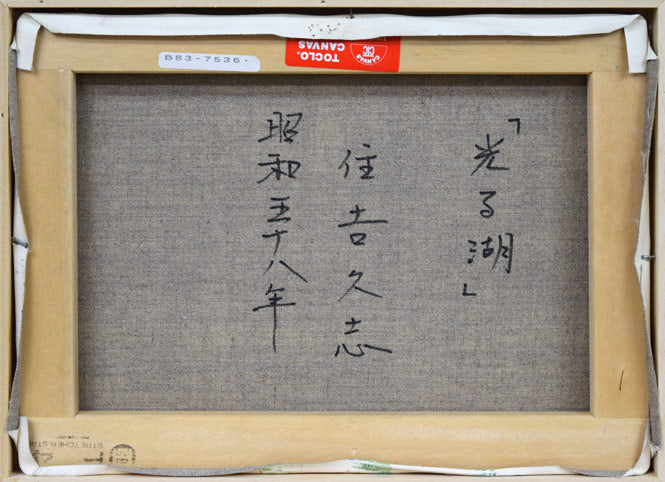 「光る湖」
住吉久志
昭和五十八年
B83-7536.
TOCLO.
CANVAS
CANVAS
CTC
STRETCHER.STR
4